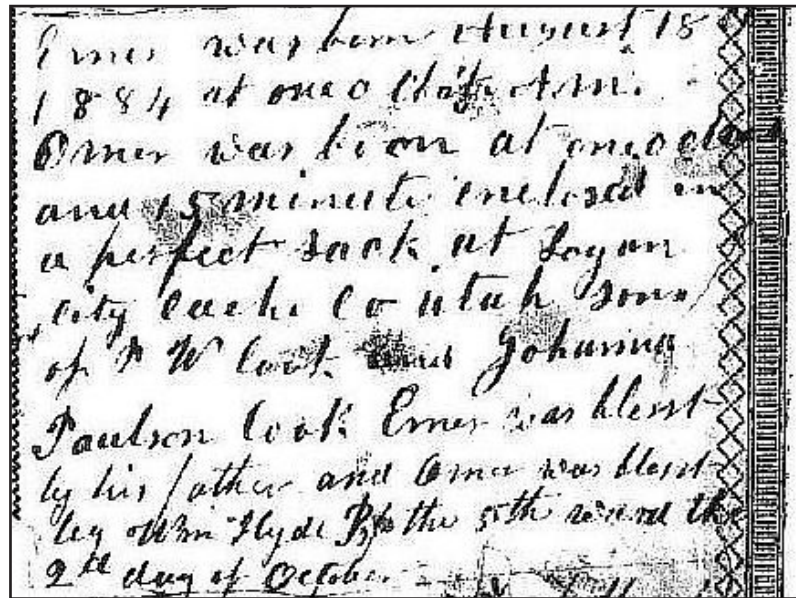 Emer was born August 18
1884 at one o clock A.M.
Omer was born at one o cloc
and 15 minute enclosed in
a perfect sack at Logan
city Cache Co Utah sons
of P W Cook and Johanna
Paulson Cook Emer was blesst
by his father and Omer was blesst
by Wm Hyde Bp the 5th ward the
2nd day of October